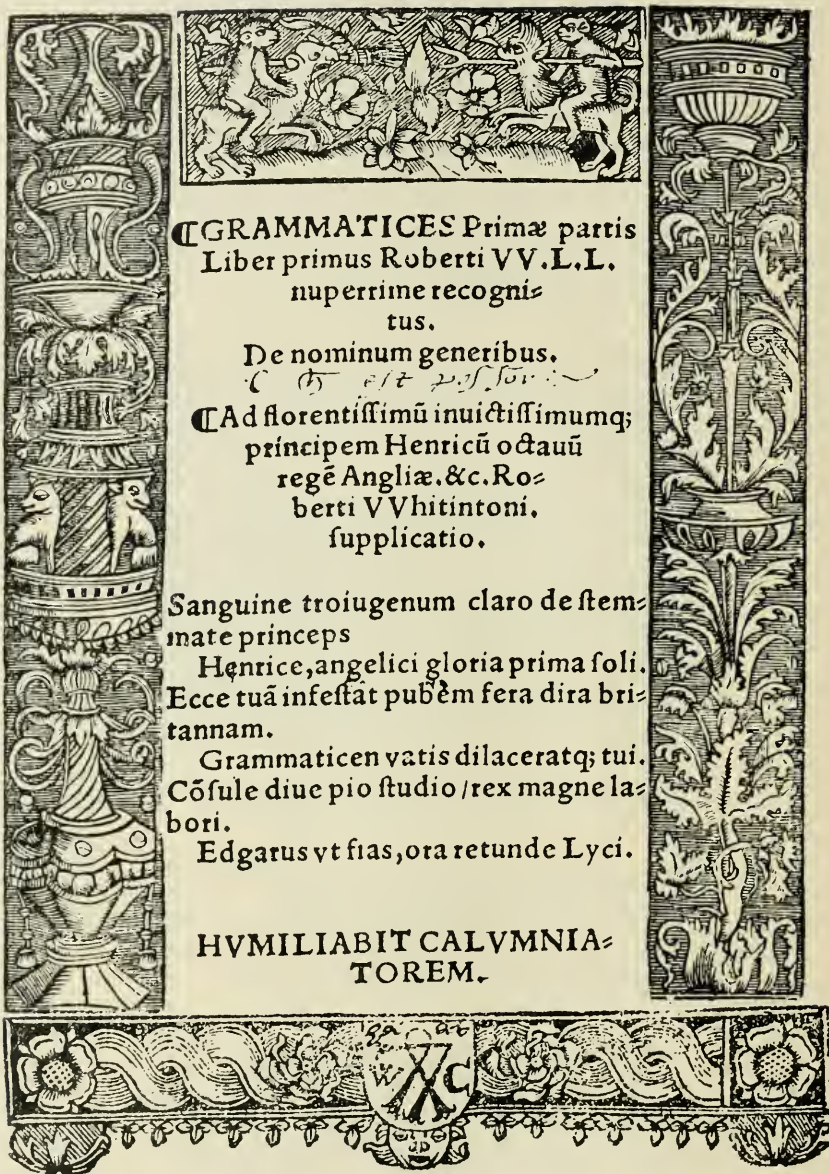 ❡GRAMMATICES Primæ partis
Liber primus Roberti VV.L.L.
nuperrime recogni⸗
tus.
De nominum generibus.
est
❡Ad florentiſſimū inuictiſſimumq;
principem Henricū octauū
regē Angliæ.&c.Ro⸗
berti VVhitintoni.
ſupplicatio.
Sanguine troiugenum claro de ſtem⸗
mate princeps
Henrice,angelici gloria prima ſoli.
Ecce tuā infeſtāt pubem fera dira bri⸗
tannam.
Grammaticen vatis dilaceratq; tui.
Cōſule diue pio ſtudio/rex magne la⸗
bori.
Edgarus vt fias,ora retunde Lyci.
HVMILIABIT CALVMNIA⸗
TOREM.
W C